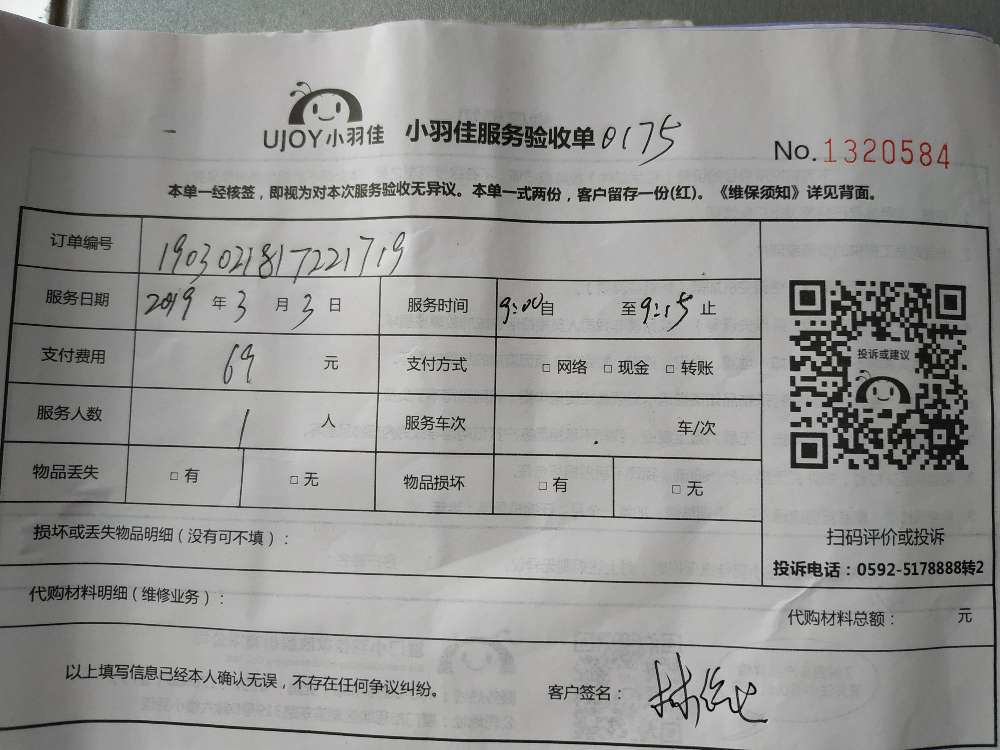 UJOY小羽佳 小羽佳服务验收单 0175
No.1320584
本单一经核签，即视为对本次服务验收无异议。本单一式两份，客户留存一份(红)。《维保须知》详见背面。
订单编号 1903021817221719
服务日期 2019 年 3 月 3 日 服务时间 9:00自 至9:15止
投诉或建议
支付费用 69 元 支付方式 □ 网络 □ 现金 □ 转账
服务人数 1 人 服务车次 车/次
物品丢失 □ 有 □ 无 物品损坏 □ 有 □ 无
损坏或丢失物品明细（没有可不填）：
扫码评价或投诉
投诉电话：0592-5178888转2
代购材料明细（维修业务）：
代购材料总额： 元
以上填写信息已经本人确认无误，不存在任何争议纠纷。 客户签名：